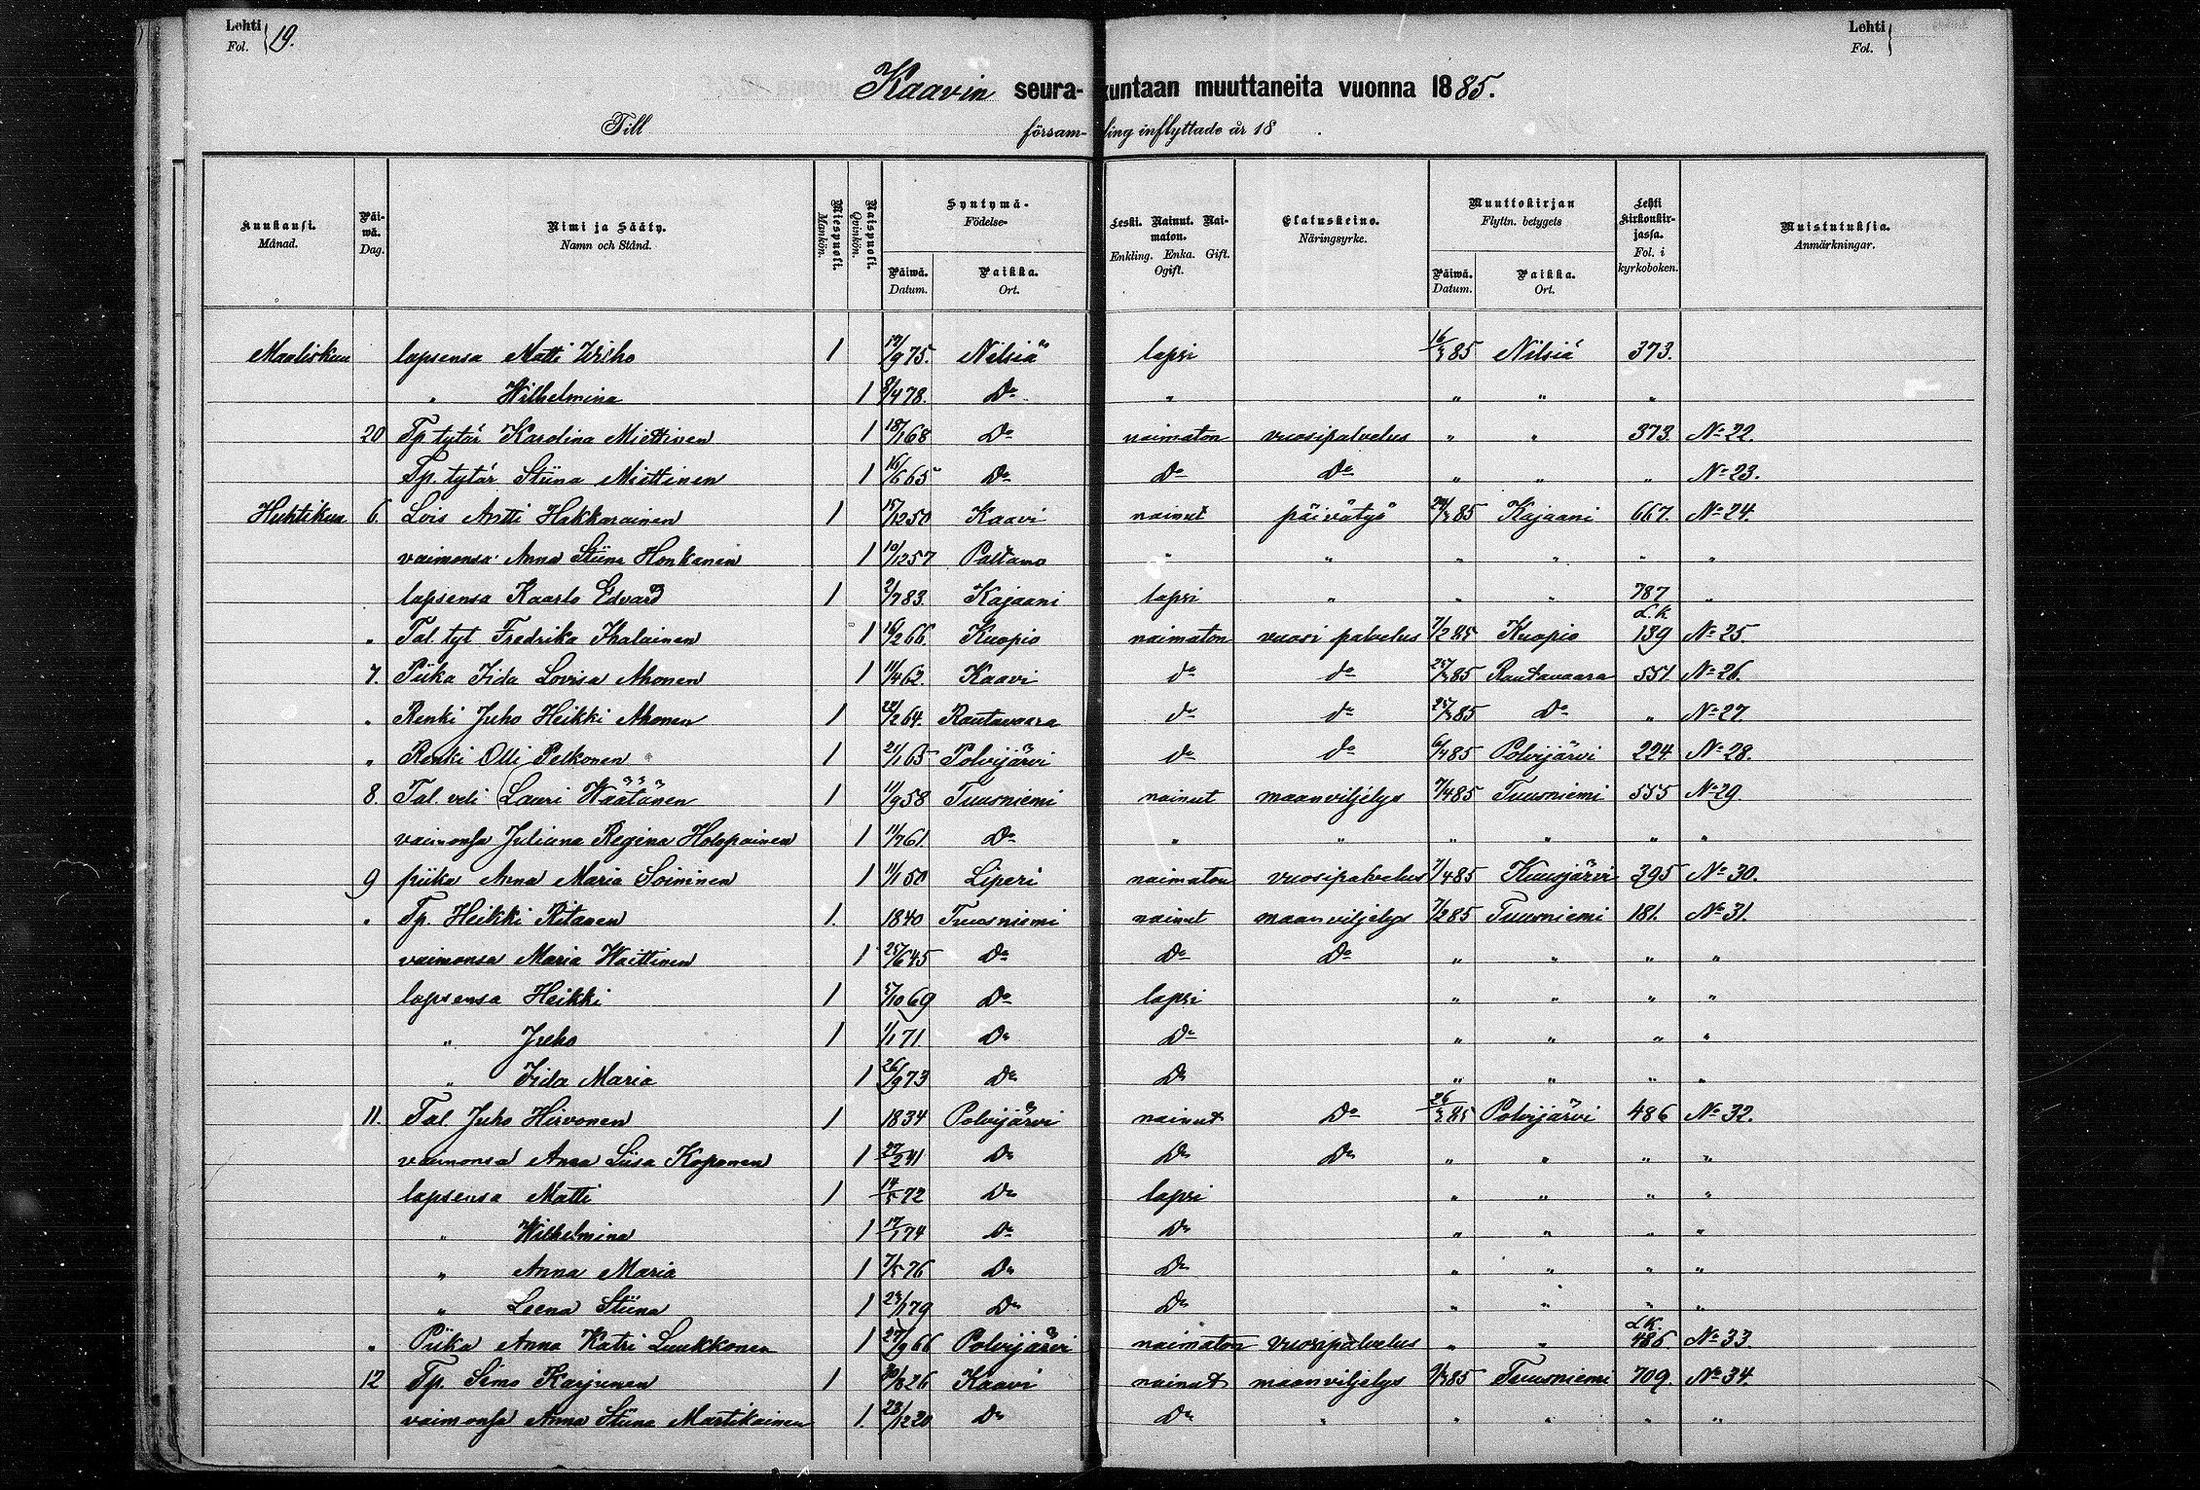 Lehti Fol. 19.
Lehti Fol.
Kaavin seurakuntaan muuttaneita vuonna 1885.
Till försam-ling inflyttade år 18 .
Kuukausi. Månad. Päiwä. Dag. Nimi ja Sääty. Namn och Stånd. Miespuoli. Mankön. Naispuoli. Qvinkön. Syntymä- Födelse- Päiwä. Datum. Paikka. Ort. Leski. Nainut. Naimaton. Enkling. Enka. Gift. Ogift. Elatuskeino. Näringsyrke. Muuttokirjan Flyttn. betygets Päiwä. Datum. Paikka. Ort. Lehti kirkonkirjassa. Fol. i kyrkoboken. Muistutuksia. Anmärkningar.
Maaliskuu lapsensa Matti Wilho 1 /9 75. Nilsiä lapsi 16/3 85 Nilsiä 373.
" Wilhelmina 1 /4 78. Do " " " "
20 Tp tytär Karolina Miettinen 1 18/1 68 Do naimaton vuosipalvelus " " 373. No 22.
Tp. tytär Stiina Miettinen 1 16/6 65 Do Do Do " " " No 23.
Huhtikuu 6. Lois Antti Hakkarainen 1 15/12 50 Kaavi nainut päivätyö /3 85 Kajaani 667. No 24.
vaimonsa Anna Stiina Honkanen 1 10/12 57 Paltamo " " " " " "
lapsensa Kaarlo Edvard 1 2/7 83. Kajaani lapsi " " " 787 "
" Tal. tyt Fredrika Ihalainen 1 16/2 66. Kuopio naimaton vuosi palvelus 7/2 85 Kuopio L.K. 139 No 25.
7. Piika Iida Lovisa Ahonen 1 11/4 62. Kaavi do do 25/3 85 Rautavaara 551. No 26.
" Renki Juho Heikki Ahonen 1 22/2 64. Rautavaara do do 25/3 85 Do " No 27.
" Renki Olli Pelkonen 1 21/1 65 Polvijärvi do do 6/4 85 Polvijärvi 224. No 28.
8. Tal. veli Lauri Wäätänen 1 11/9 58 Tuusniemi nainut maanviljelys 7/4 85 Tuusniemi 555 No 29.
vaimonsa Juliana Regina Holopainen 1 11/7 61. Do " " " " " "
9 piika Anna Maria Soininen 1 11/1 50 Liperi naimaton vuosipalvelus 7/4 85 Kuusjärvi 395 No 30.
" Tp. Heikki Ritanen 1. 1840 Tuusniemi nainut maanviljelys 7/2 85 Tuusniemi 181. No 31.
vaimonsa Maria Waittinen 1 25/6 45 Do Do Do " " " "
lapsensa Heikki 1 5/10 69 Do lapsi " " " "
" Juho 1 1/1 71 Do Do " " " "
" Iida Maria 1 26/9 73 Do Do " " " "
11. Tal. Juho Hirvonen 1 1834 Polvijärvi nainut Do 26/3 85 Polvijärvi 486 No 32.
vaimonsa Anna Liisa Koponen 1 27/2 41 Do Do Do " " " "
lapsensa Matti 1 14/5 72 Do lapsi " " " "
" Wilhelmina 1 17/1 74 Do Do " " " "
" Anna Maria 1 7/5 76 Do Do " " " "
" Leena Stiina 1 /1 79 Do Do " " " "
" Piika Anna Katri Luukkonen 1 27/9 66 Polvijärvi naimaton vuosipalvelus " " L.K. 486. No 33.
12 Tp. Simo Karjunen 1 26 Kaavi nainut maanviljelys 85 Tuusniemi 709. No 34.
vaimonsa Anna Stiina Martikainen 1. 28/12 20 Do Do " " " " "